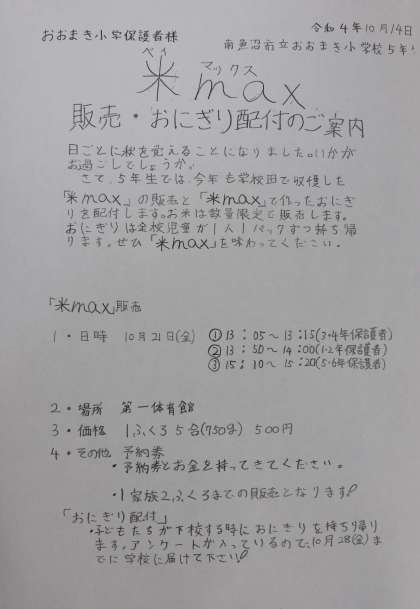 令和4年10月14日
おおまき小学保護者様
南魚沼市立おおまき小学校5年
ベイ マックス
米max
販売・おにぎり配付のご案内
日ごとに秋を覚えることになりました。いかが
お過ごしでしょうか。
さて、5年生では、今年も学校田で収穫した
「米max」の販売と「米max」で作ったおにぎ
りを配付します。お米は数量限定で販売します。
おにぎりは全校児童が1人1パックずつ持ち帰
ります。ぜひ「米max」を味わってください。
「米max」販売
1・日時 10月21日(金) ①13:05~13:15(3・4年保護者)
②13:50~14:00(1・2年保護者)
③15:10~15:20(5・6年保護者)
2・場所 第一体育館
3・価格 1ふくろ5合(750g) 500円
4・その他 予約券
・予約券とお金を持ってきてください。
・1家族2ふくろまでの販売となります!
「おにぎり配付」
・子どもたちが下校する時におにぎりを持ち帰り
ます。アンケートが入っているので、10月28(金)ま
でに学校に届けて下さい!